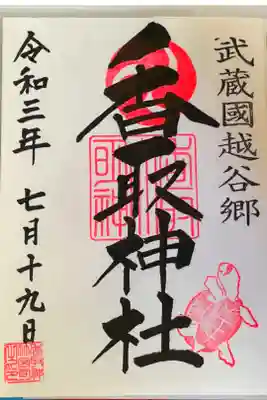 武蔵國越谷郷
香取神社
令和三年 七月十九日